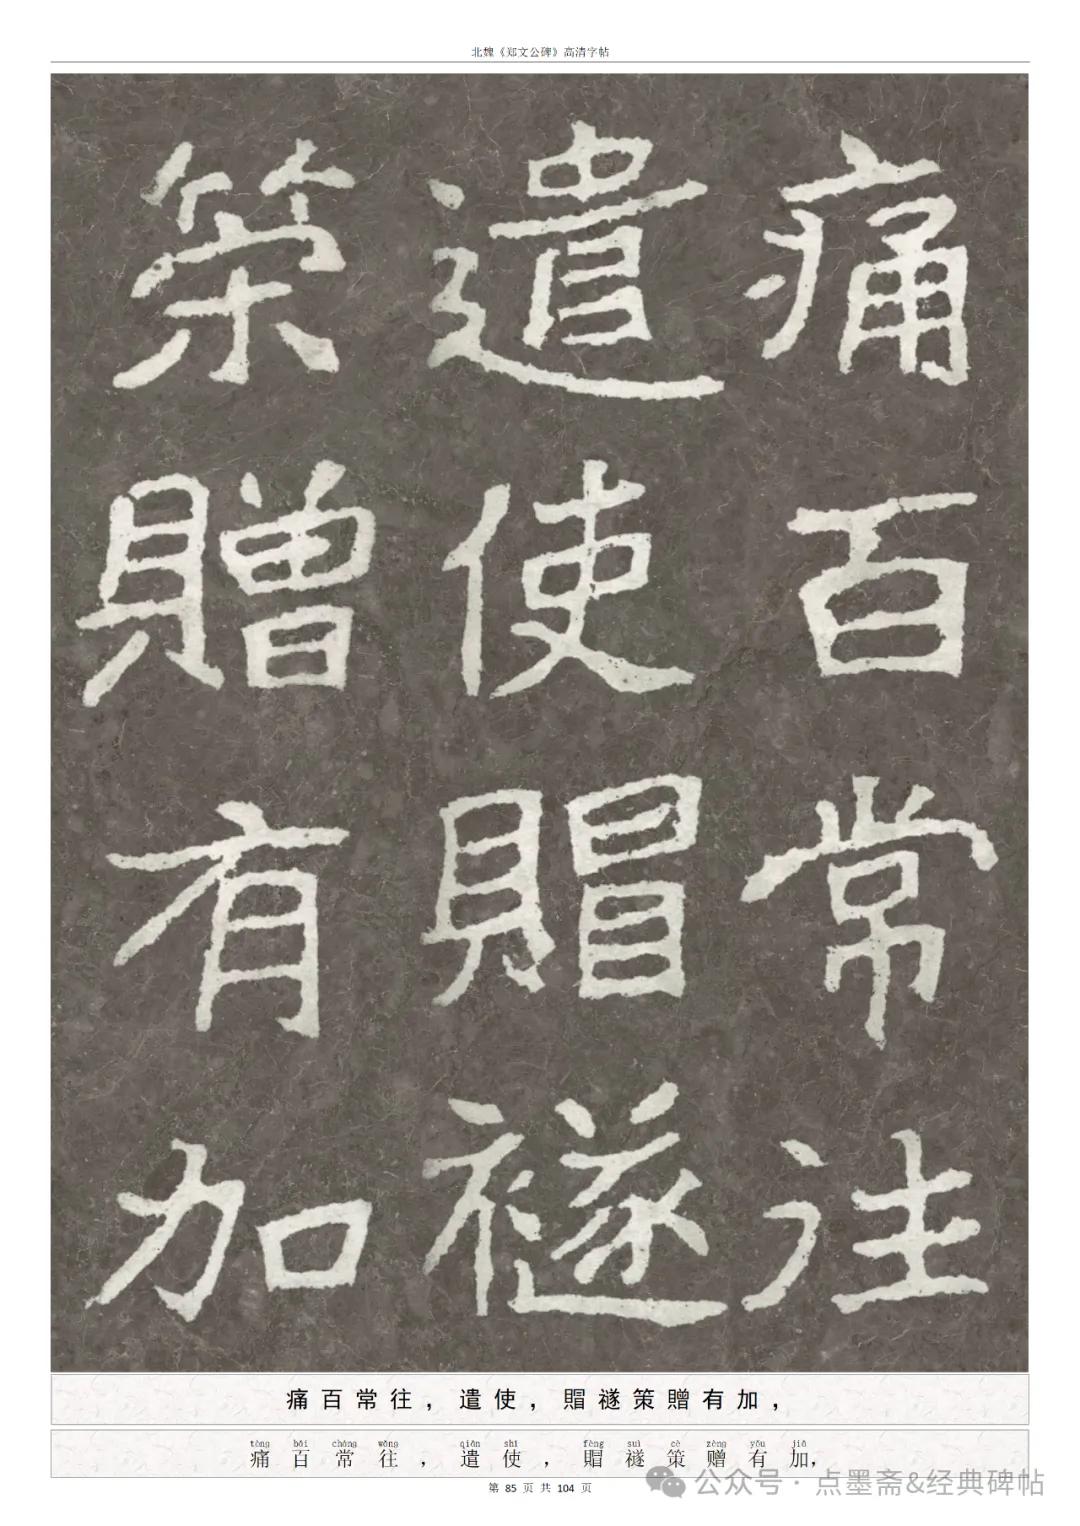 北魏《郑文公碑》高清字帖
痛百常往
遣使賵襚
策贈有加
痛百常往，遣使，賵襚策贈有加，
tòng bǎi cháng wǎng qiǎn shǐ fèng suì cè zèng yǒu jiā
痛百常往，遣使，賵襚策赠有加，
第 85 页 共 104 页
公众号 · 点墨斋&经典碑帖